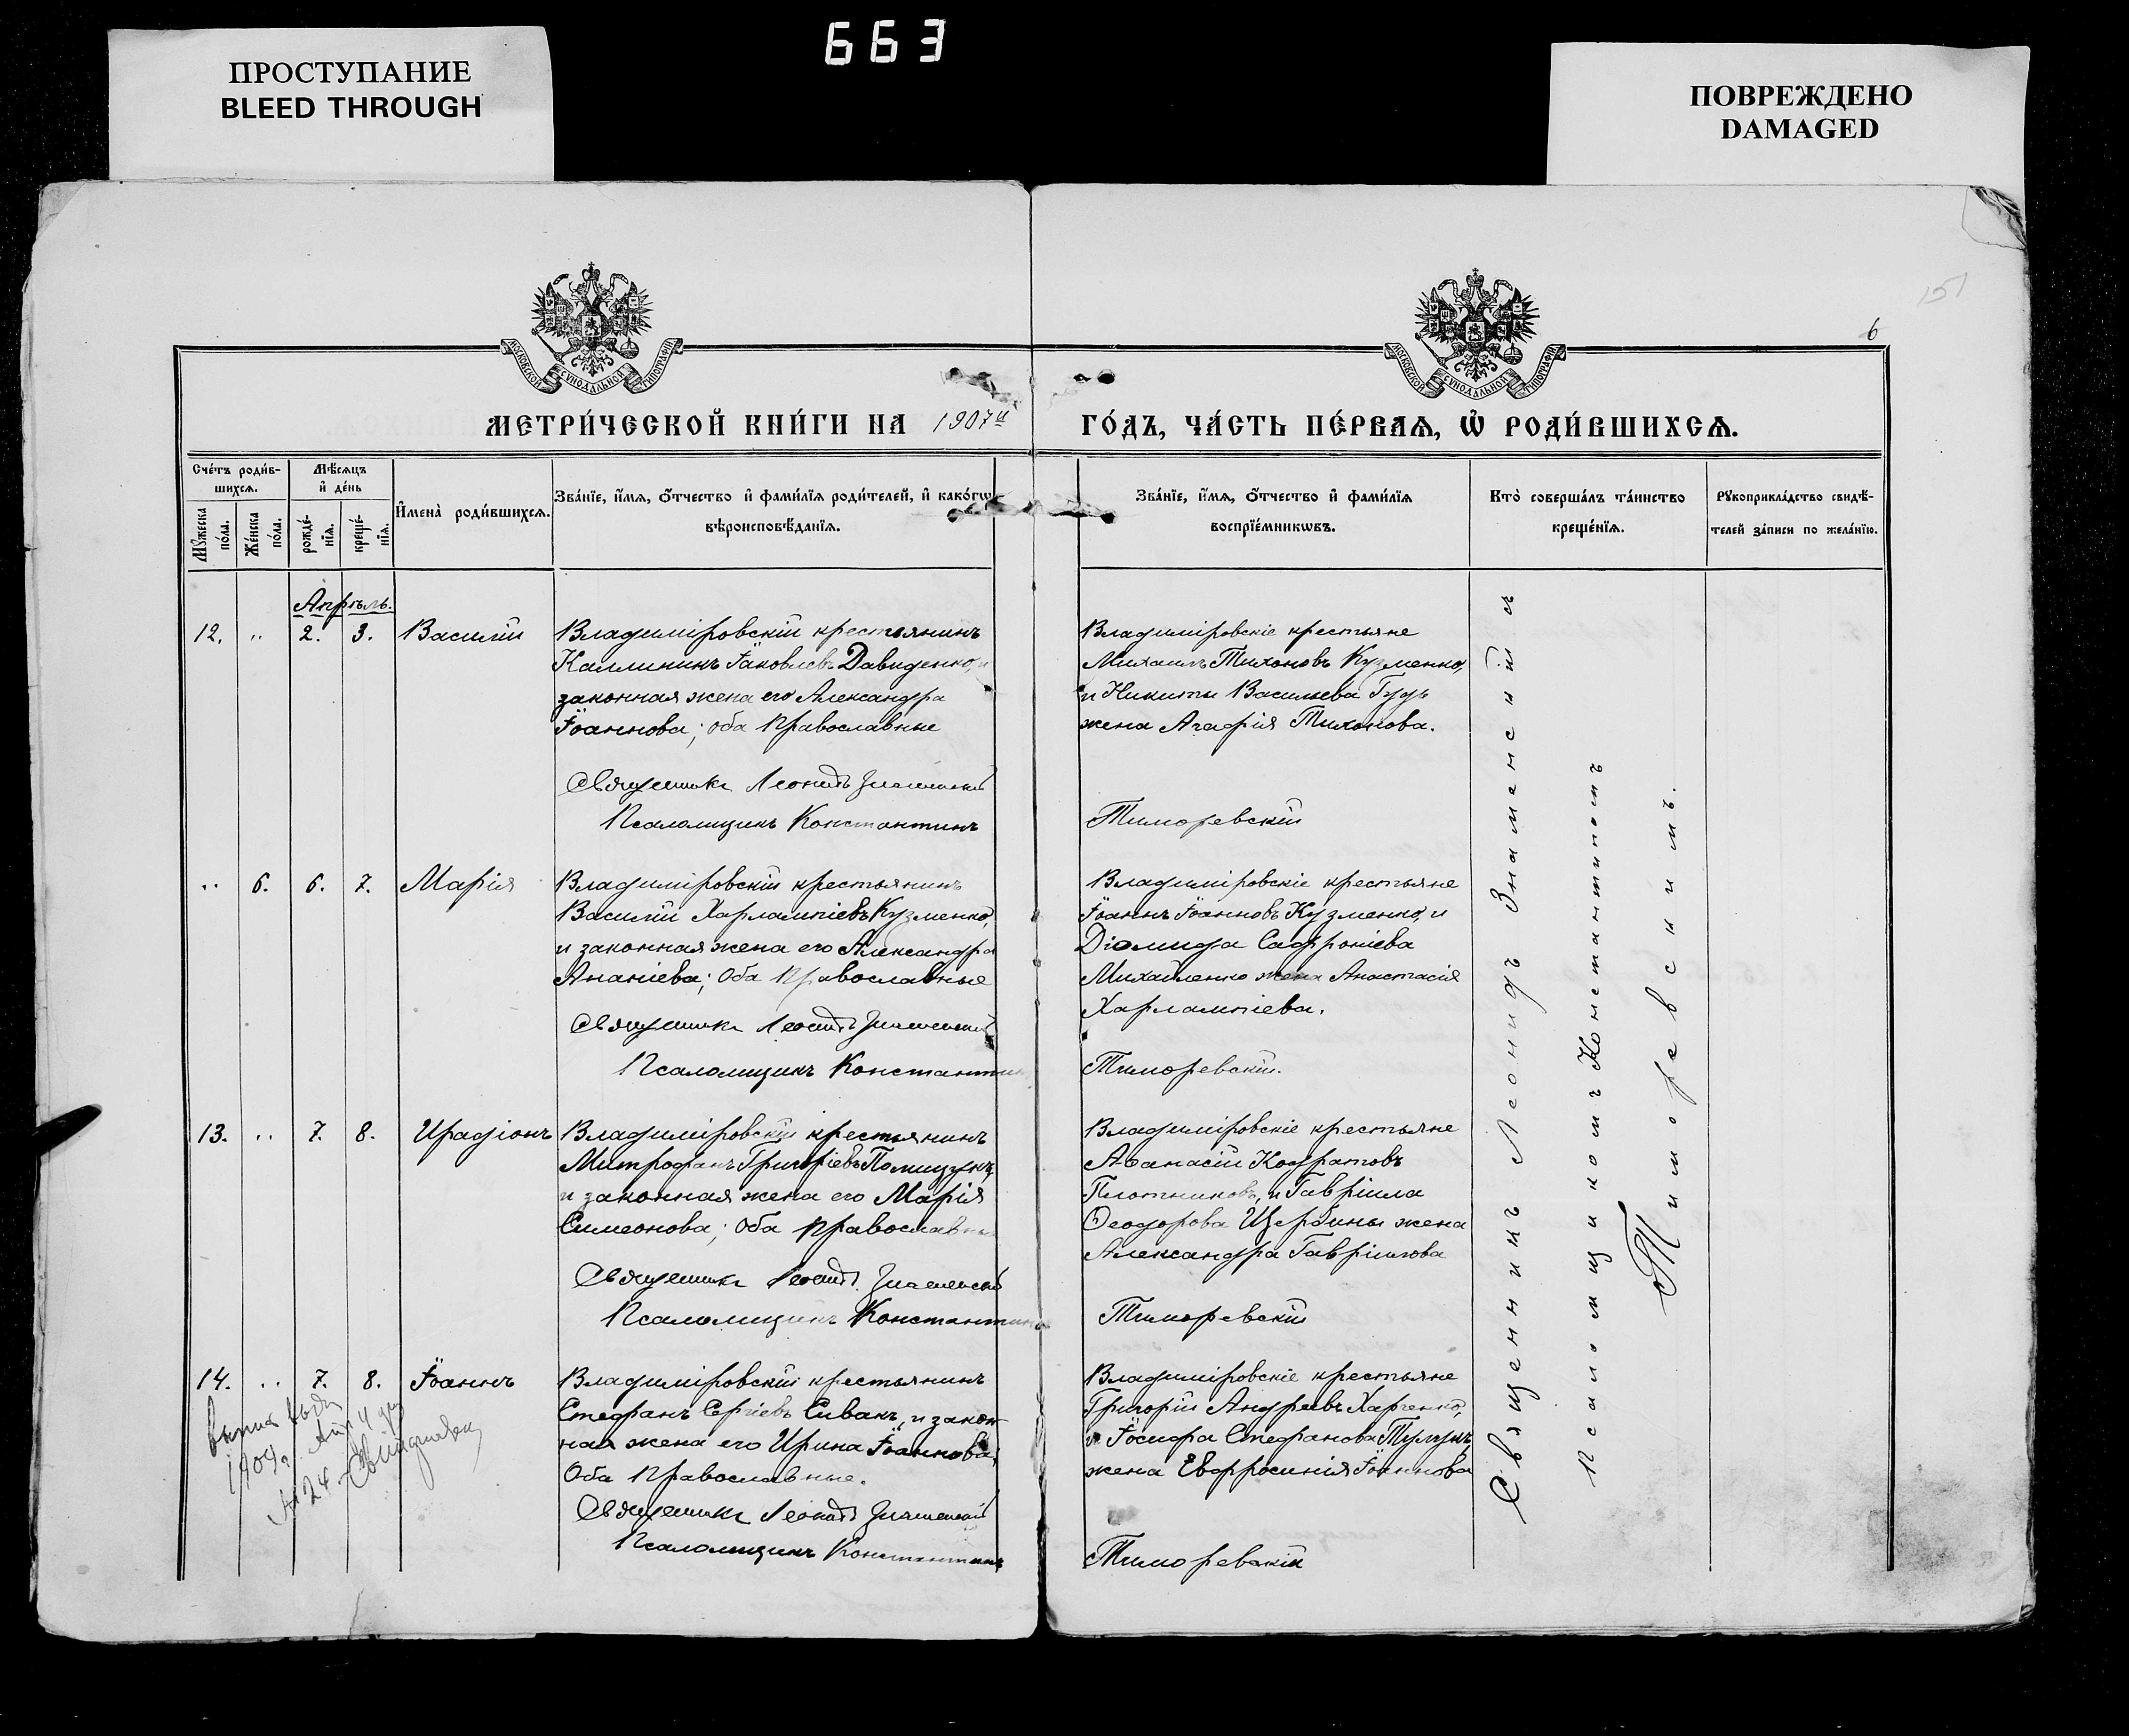 663
ПРОСТУПАНИЕ
BLEED THROUGH
ПОВРЕЖДЕНО
DAMAGED
151
6
МОСКОВСКОЙ СѴНОДАЛЬНОЙ ТИПОГРАФІИ
МОСКОВСКОЙ СѴНОДАЛЬНОЙ ТИПОГРАФІИ
МЕТРИ́ЧЕСКОЙ КНИ́ГИ НА 1907й ГО́ДЪ, ЧА́СТЬ ПЕ́РВАѦ, Ѡ҆ РОДИ́ВШИХСѦ.
Сче́тъ роди́в-
шихсѧ.
Мꙋжеска по́ла.
Же́нска по́ла.
Мѣ́сѧцъ
и҆ де́нь
рожде́-
нїѧ.
креще́-
нїѧ.
И҆мена̀ роди́вшихсѧ.
Зва́нїе, и҆́мѧ, ѻ҆́тчество и҆ фами́лїѧ роди́телей, и҆ како́гѡ
вѣроисповѣ́данїѧ.
Зва́нїе, и҆́мѧ, ѻ҆́тчество и҆ фами́лїѧ
воспрїе́мникѡвъ.
Кто̀ соверша́лъ та́инство
креще́нїѧ.
Рꙋкоприкла́дство свидѣ́-
телей за́писи по жела́нїю.
Апрѣль.
12. " 2. 3. Василій
Владимiровскій крестьянинъ
Каллиникъ Іаковлевъ Давиденко, и
законная жена его Александра
Іоаннова; оба Православные
Священникъ Леонидъ Знаменскій
Псаломщикъ Константинъ
Владимiровскіе крестьяне
Михаилъ Тихоновъ Кузменко,
и Никиты Васильева Гудь
жена Агафія Тихонова.
Тиморевскій
" 6. 6. 7. Марія
Владимiровскій крестьянинъ
Василій Харлампіевъ Кузменко,
и законная жена его Александра
Ананіева; Оба Православные
Священникъ Леонидъ Знаменскій
Псаломщикъ Константин
Владимiровскіе крестьяне
Іоаннъ Іоанновъ Кузменко, и
Діомида Сафроніева
Михайленко жена Анастасія
Харлампіева.
Тиморевскій.
13. " 7. 8. Иродіонъ
Владимiровскій крестьянинъ
Митрофанъ Григоріевъ
и законная жена его Марія
Симеонова; Оба Православны
Священникъ Леонидъ Знаменскій
Псаломщикъ Константинъ
Владимiровскіе крестьяне
Аѳанасій Кодратовъ
Плотниковъ, и Гавріила
Ѳеодорова Щербины жена
Александра Гавріилова
Тиморевскій
14. " 7. 8. Іоаннъ
Владимiровскій крестьянинъ
Стефанъ Сергіевъ Сивакъ, и закон-
ная жена его Ирина Іоаннова;
Оба Православные.
Священникъ Леонидъ Знаменскій
Псаломщикъ Константинъ
Владимiровскіе крестьяне
Григорій Андреевъ Харченко,
и Іосифа Стефанова
жена Евфросинія Іоаннова
Тиморевскій
1909 г.
№ 24
Священникъ Леонидъ Знаменскій съ
Псаломщикомъ Константиномъ
Тиморевскимъ.